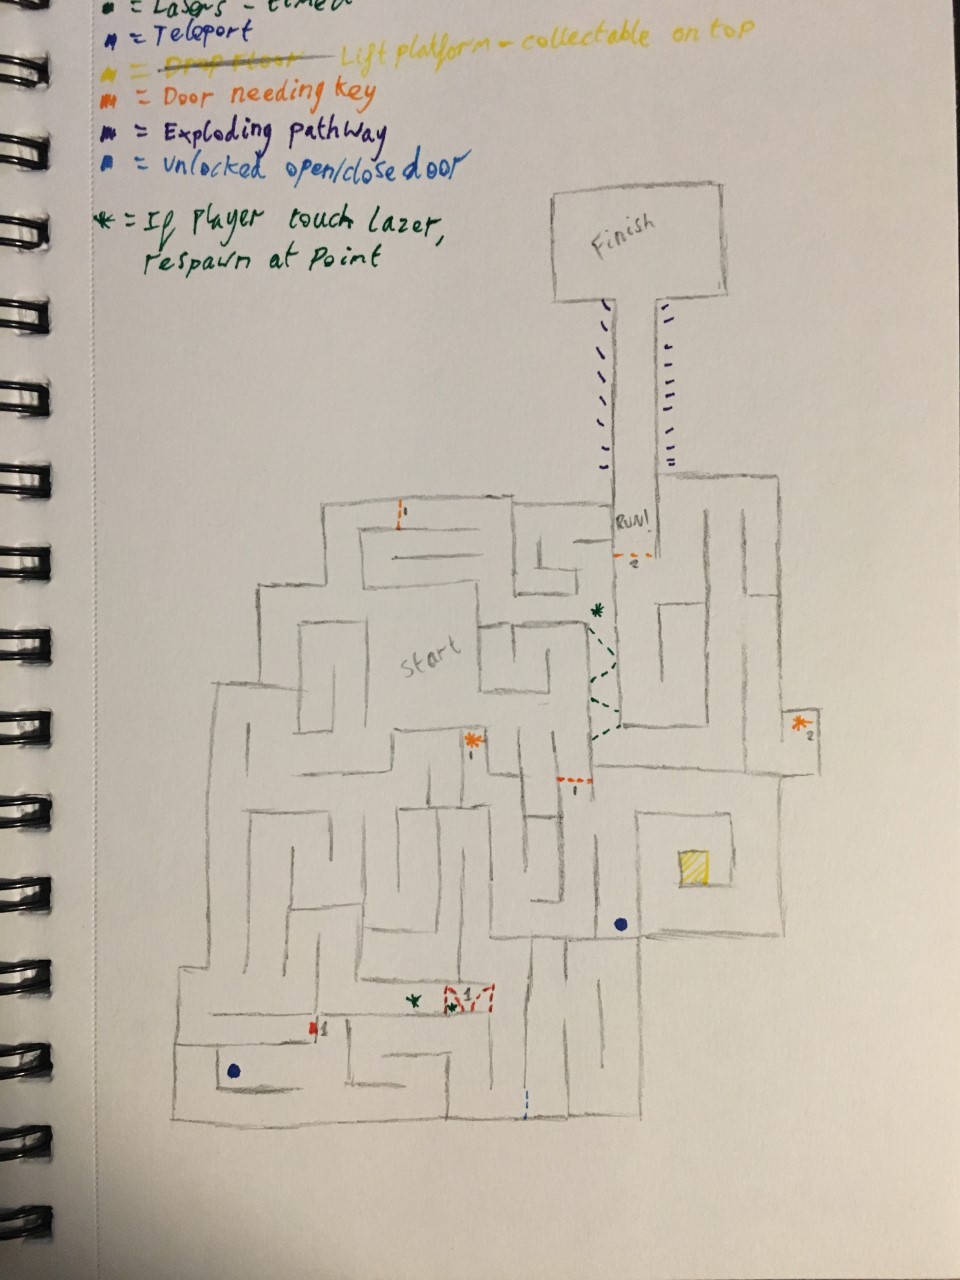 = Lasers - timed
= Teleport
= Drop Floor Lift platform - collectable on top
= Door needing key
= Exploding pathway
= Unlocked open/close door
* = If player touch lazer,
respawn at point
Finish
RUN!
1
2
Start
1
2
1
1
1